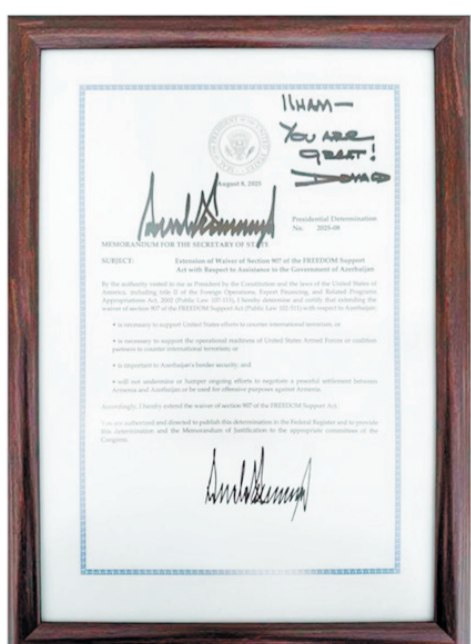 ILHAM—
YOU ARE
GREAT!
DONALD
August 8, 2025
Presidential Determination
No. 2025-08
MEMORANDUM FOR THE SECRETARY OF STATE
SUBJECT: Extension of Waiver of Section 907 of the FREEDOM Support
Act with Respect to Assistance to the Government of Azerbaijan
By the authority vested in me as President by the Constitution and the laws of the United States of
America, including Title II of the Foreign Operations, Export Financing, and Related Programs
Appropriations Act, 2002 (Public Law 107-115), I hereby determine and certify that extending the
waiver of section 907 of the FREEDOM Support Act (Public Law 102-511) with respect to Azerbaijan:
• is necessary to support United States efforts to counter international terrorism; or
• is necessary to support the operational readiness of United States Armed Forces or coalition
partners to counter international terrorism; or
• is important to Azerbaijan's border security; and
• will not undermine or hamper ongoing efforts to negotiate a peaceful settlement between
Armenia and Azerbaijan or be used for offensive purposes against Armenia.
Accordingly, I hereby extend the waiver of section 907 of the FREEDOM Support Act.
You are authorized and directed to publish this determination in the Federal Register and to provide
this determination and the Memorandum of Justification to the appropriate committees of the
Congress.